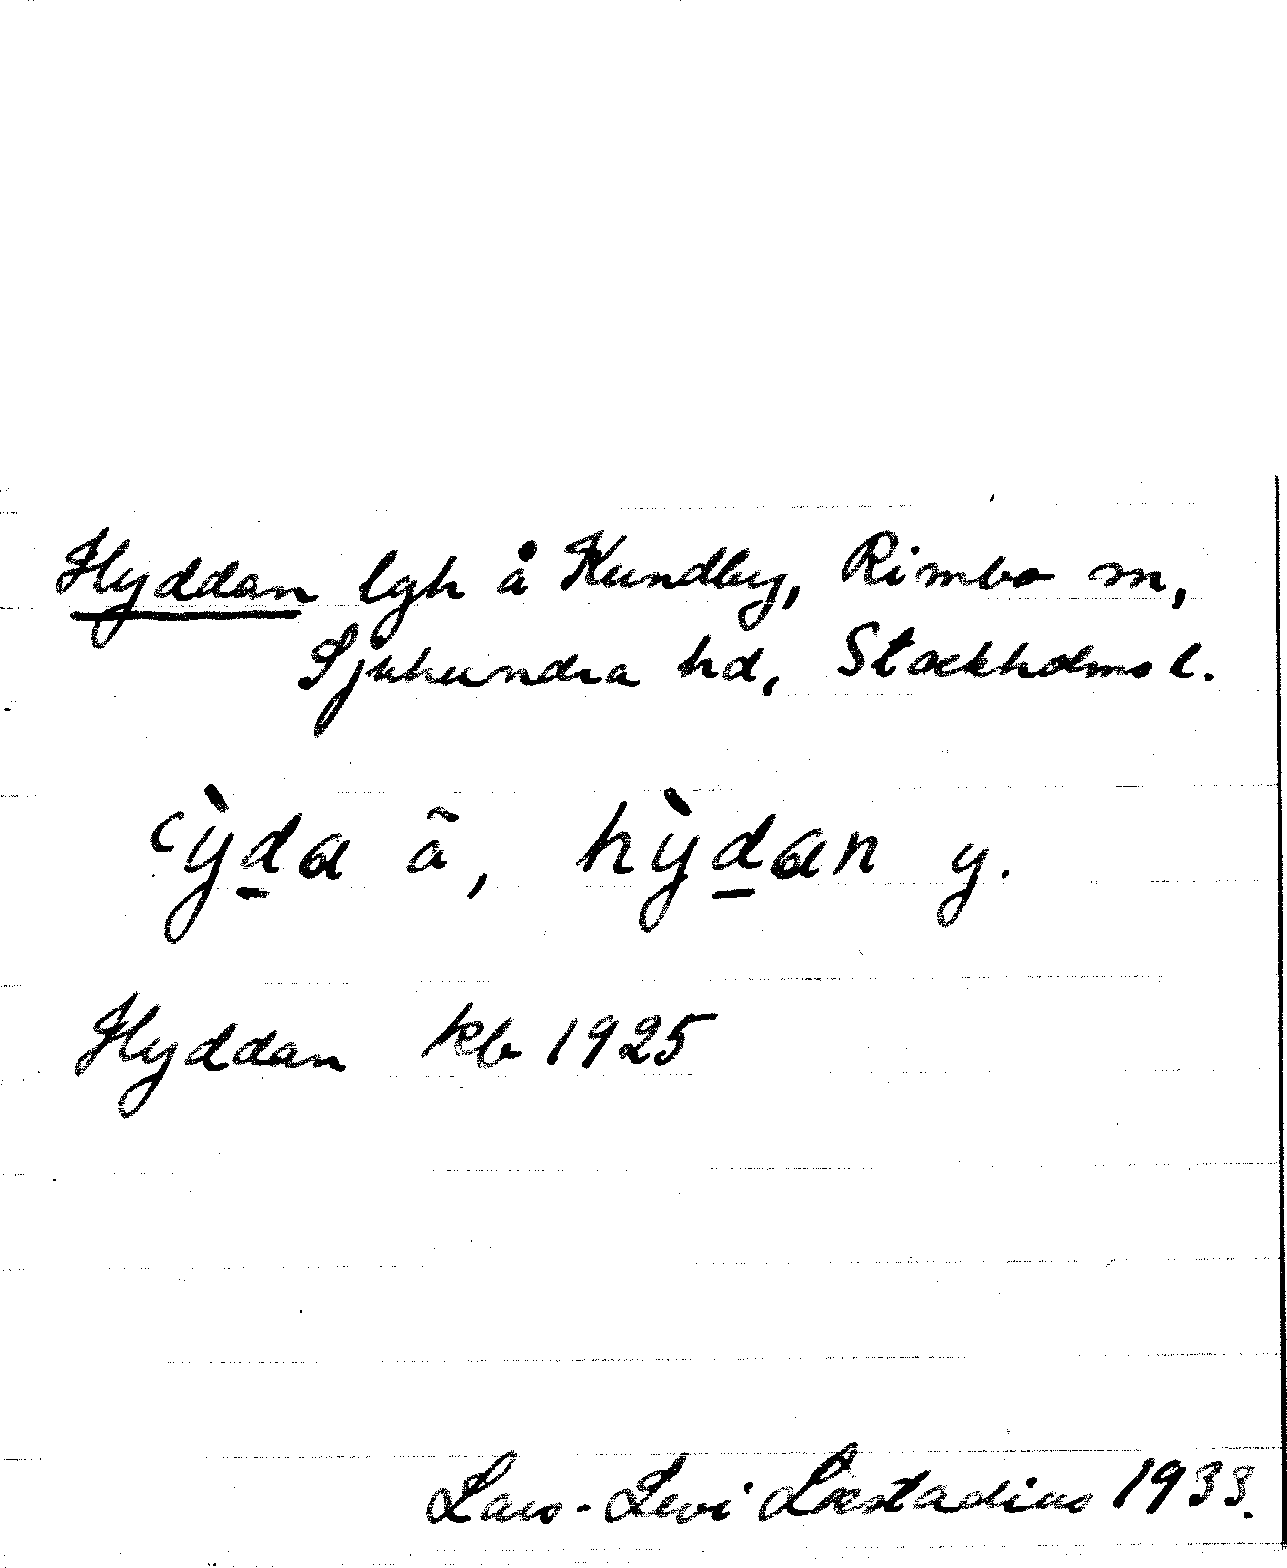 Hyddan lgh å Kundby, Rimbo sn,
Sjuhundra hd, Stockholms l.
ʿỳd̲a ã, hỳd̲an y.
Hyddan kb 1925
Lars-Levi Læstadius 1933.